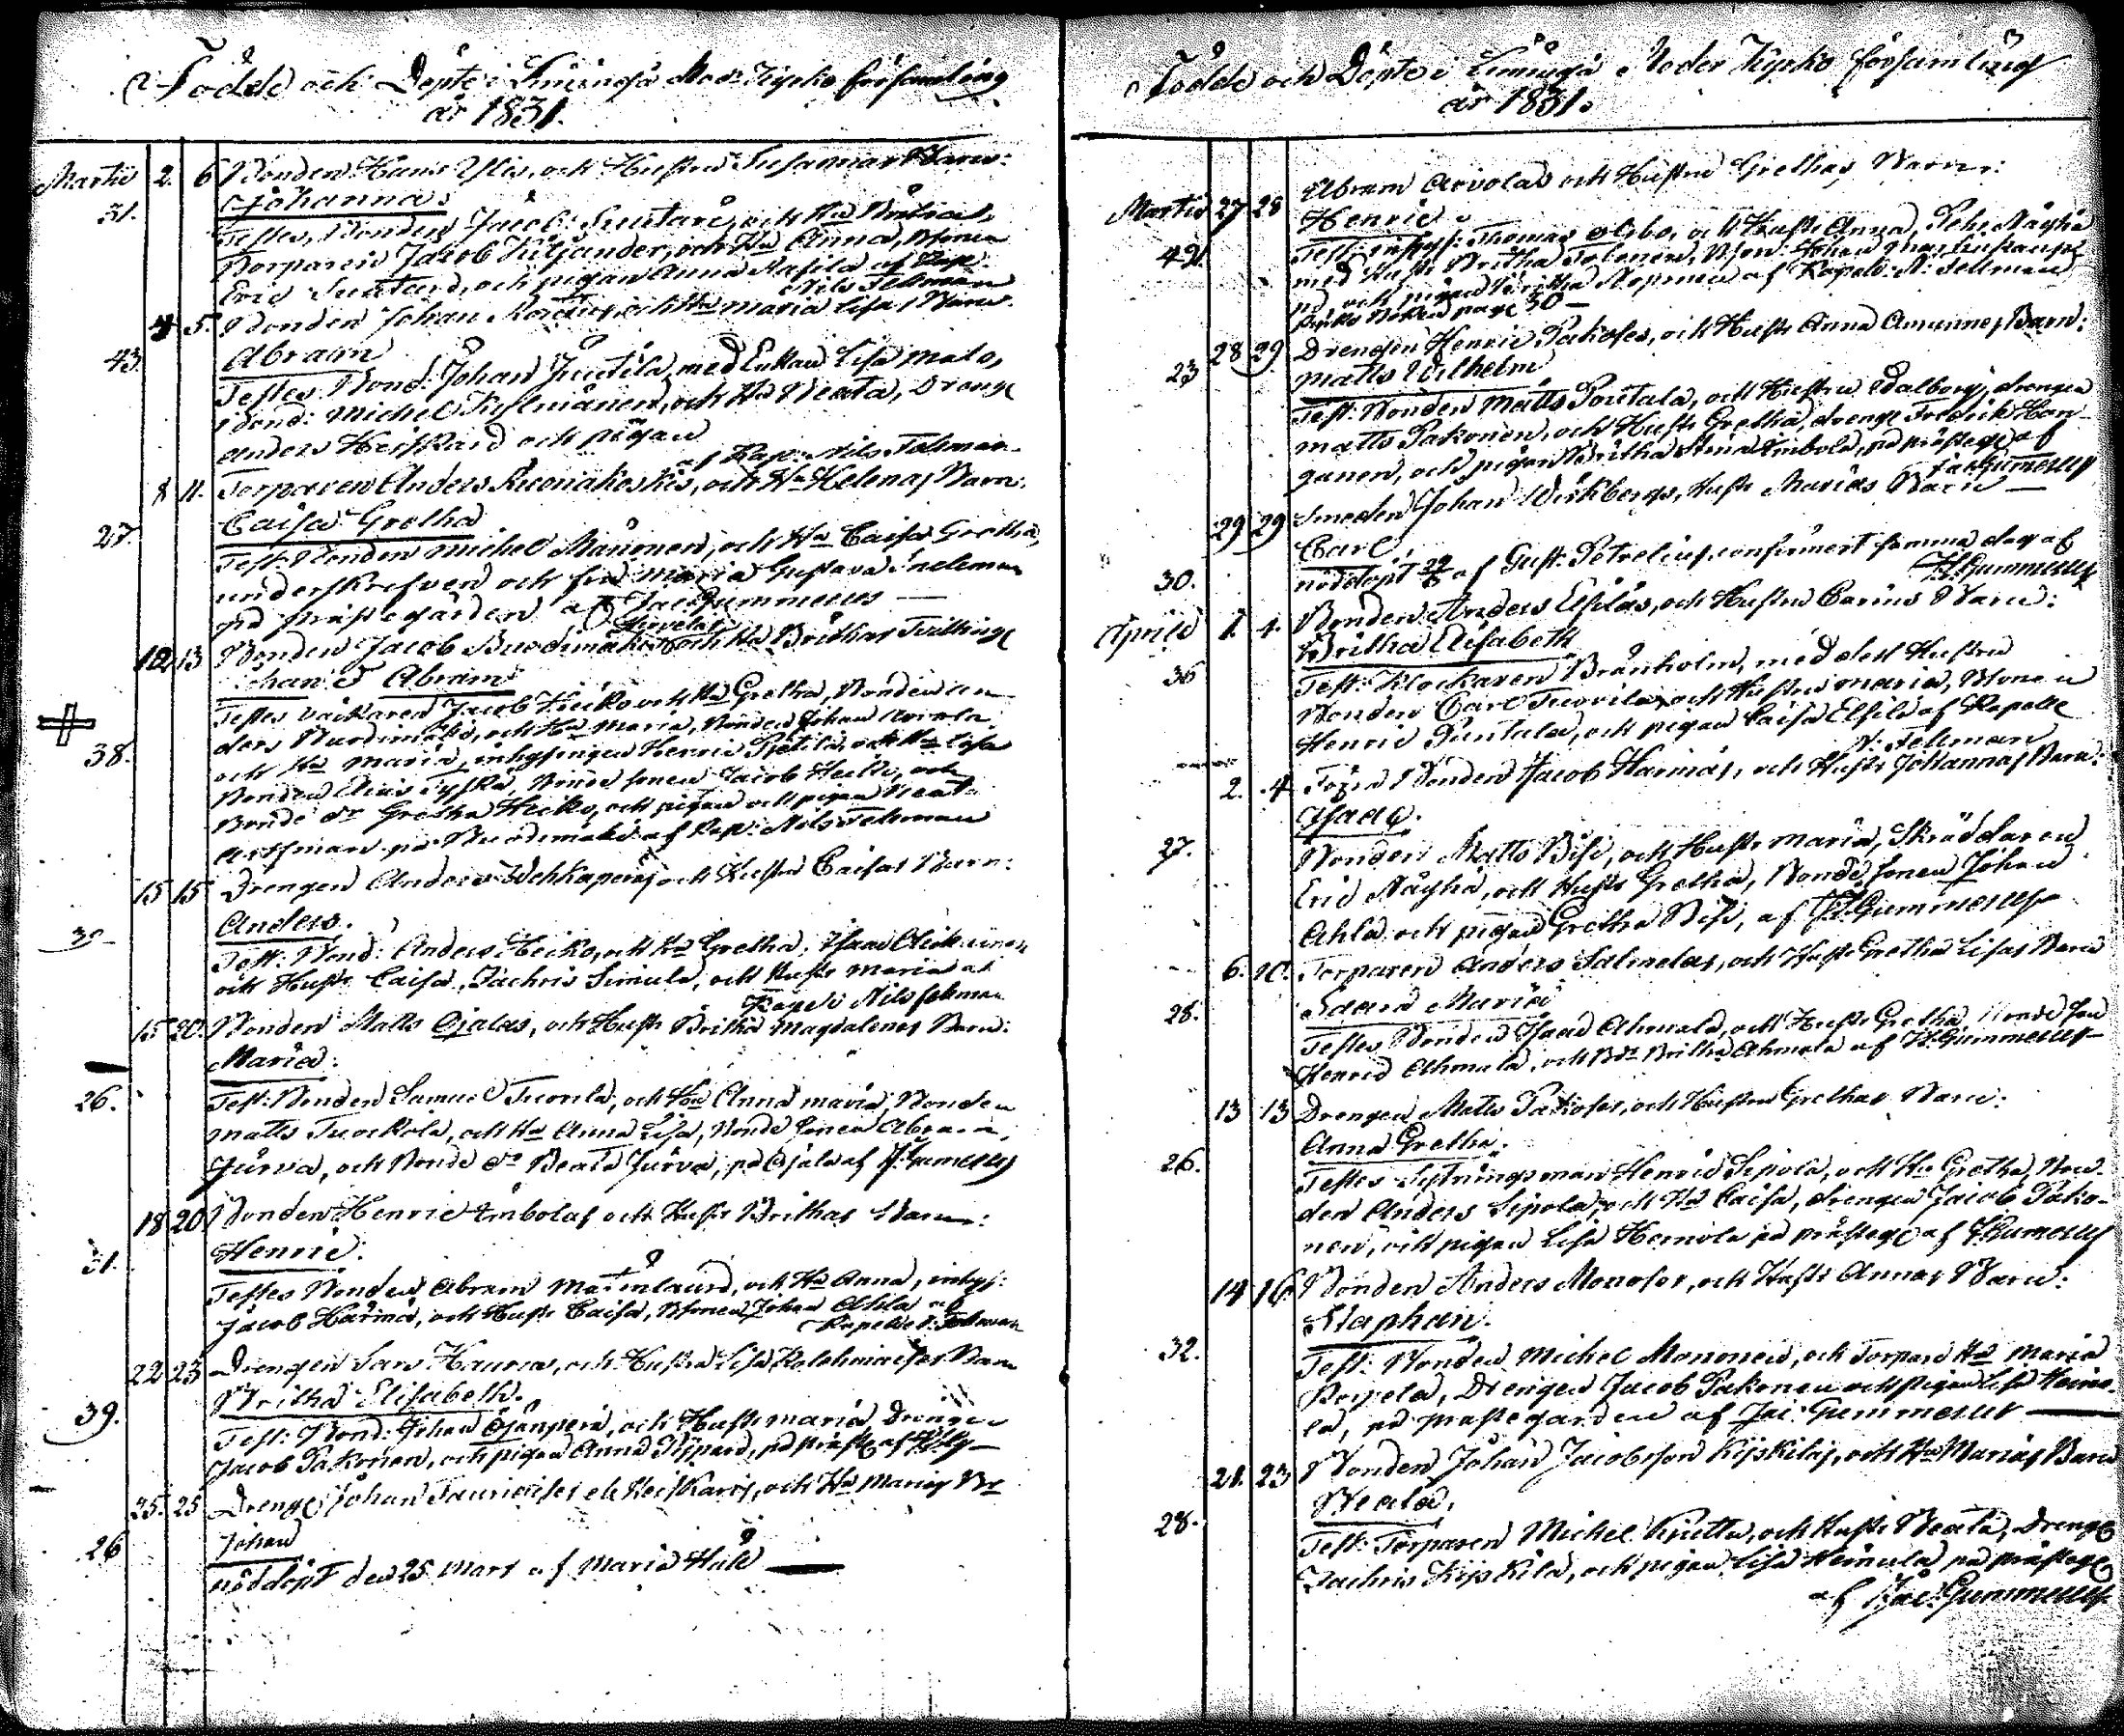 Födde och Döpte i Limingå Mod: Kyrko församling
år 1831.
Martii 2. 6 Bonden Hans Ylis, och Hustru Susannas Barn:
Johanna.
31.
Testes, Bonden Jacob Suutari, och Hu Britha,
Torparen Jacob Kiljander, och Hu Anna, Bsonen
Eric Suutari, och pigan Anna Matila af Kap:
Nils Fellman
4 5. Bonden Johan och Hu Maria Lisas Barn.
Abram
43.
Testes Bond: Johan Juutila, med Enkan Lisa Malo,
Bond: Michel och Hu Beata, Dreng
Anders Heiskari och pigan
af Kap: Nils Fellman
8 11. Torparen Anders Kuonakoskis, och Hu Helenas Barn.
Caisa Gretha
27.
Test: Bonden Michel Manninen, och Hu Caisa Gretha,
underskrefven och fru Maria Gustava
på prästegården af Jac Gummerus
12 13 Bonden Jacob och Hu Brithas Tvillingar
Johan & Abram
38.
Testes Jacob Heikko och Hu Gretha, Bonden An-
ders och Hu Maria, Bonden Johan Arvola
och Hu Maria, inhysingen Henric och Hu Lisa
Bonden Elias Tyskä, Bonde sonen Jacob Heikk, och
Bonde dr Gretha Heiko, och pigan
af Kap: Nils Fellman
15 15 Drengen Anders Wehkaperäs och Hustru Caisas Barn:
Anders.
39
Test: Bond: Anders Heiko, och Hu Gretha, Isaac
och Hustr Caisa, Zachris Simula, och Hustr Maria af
Kapel: Nils Fellman
15 20. Bonden Matts Ojalas, och Hustr Britha Magdalenas Barn:
Maria:
26.
Test: Bonden Samuel Tuorila, och Hu Anna Maria, Bonden
Matts Tuockola, och Hu Anna Lisa, Bonde sonen Abram
Jurva, och Bonde dr Beata Jurva, på Ojala af J: Gummerus
18 20 Bonden Henric Limbolas och Hustr Brithas Barn:
Henric.
31.
Testes Bonden Abram och Hu Anna, inhys:
Jacob Härmä, och Hustr Caisa, Bsonen Johan Ahla af
Kapel: N: Fellman
22 23 Drengen Lars Hauru, och Hustru Lisa Kolehmainens Barn
Britha Elisabeth.
39.
Test: Bond: Johan Ojanperä, och Hustr Maria, Drengen
Jacob Pakonen, och pigan Anna på präste af
25. 25 Dreng Johan eller Heiskaris, och Hu Marias Bn
Johan
26
nöddöpt den 25 Mars af Maria Hale
Födde och Döpte i Limingå Moder Kyrko församling
år 1831.
Abram Arvolas och Hustru Grethas Barn:
Martii 27 28
Henric.
49.
Test: inhys: Thomas och Hustr Anna, Pehr Näyhä
med Hustr Britha Tolonen, Bson: Johan
på och pigan Britha af Kapel: N: Fellman
page 30
28 29 Drengen Henric Pakoses, och Hustr Anna Barn:
Matts Wilhelm
23
Test: Bonden Matts Poutala, och Hustru Walborg, drengen
Matts Pakonen, och Hustr Gretha, dreng Fredrik Han-
ganen, och pigan Britha Stina Limbola, på prästegd af
Jac Gumerus
29 29 Smeden Johan Wirkbergs, Hustr Marias Barn
Carl
30.
nöddöpt 29/3 af Gust: Petrelius confirmert samma dag af
J. Gummerus
Aprill 1. 4. Bonden Anders Elsilas, och Hustru Carins Barn:
Britha Elisabeth
36
Test: Klockaren Brånholm, med dess Hustru
Bonden Carl Tuorila, och Hustru Maria, Bsonen
Henric Puutala, och pigan Caisa Elsila af Kapell:
N: Fellman
2. 4 Bonden Jacob Härmäs, och Hustr Johannas Barn:
Isaac.
27.
Bonden Matts Pisi, och Hustr Maria, Skräddaren
Eric Näyhä, och Hustr Gretha, Bonde sonen Johan
Ahla och pigan Gretha Pisi, af J. Gummerus
6. 10. Torparen Anders Salmelas, och Hustr Gretha Lisas Barn
Maria
28.
Testes Bonden Isaac Ahmala, och Hustr Gretha, Bonde son
Henric Ahmala, och Bdr Britha Ahmala af J: Gummerus
13 13 Drengen Matts Pakoses, och Hustru Grethas Barn:
Anna Gretha.
26.
Testes Henric Sipola, och Hu Gretha, Bon-
den Anders Sipola, och Hu Caisa, drengen Jacob Pako-
nen, och pigan Lisa Heinola på prästegd af J Gumerus
14 16. Bonden Anders Monoses, och Hustr Annas Barn:
Staphan.
32.
Test: Bonden Michel Mononen, och Torpare Hu Maria
Drengen Jacob Pakonen och pigan Lisa Heino-
la, på prästegården af Jac: Gummerus
21. 23 Bonden Johan Jacobsson Kijskiläs, och Hu Marias Barn
Beata.
28.
Test: Torparen Michel Knuttu, och Hustr Beata, Dreng
Zachris Kijskilä, och pigan Lisa Heinula på prästegd
af Jac: Gummerus